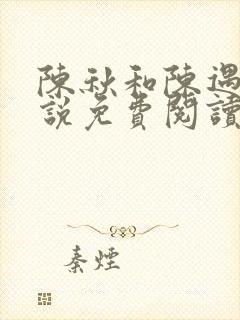 陳秋和陳遇
說免費閱讀
秦煙